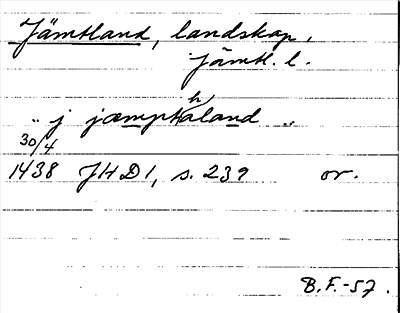 Jämtland, landskap,
jämtl. l.
.. j jæmpthaland ..
30/4
1438 JHD 1, s. 239 or.
B.F.-57.